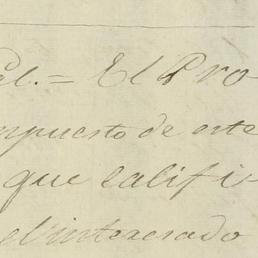 el.= El Pro-
mpuesto de este
que califi-
el interesado